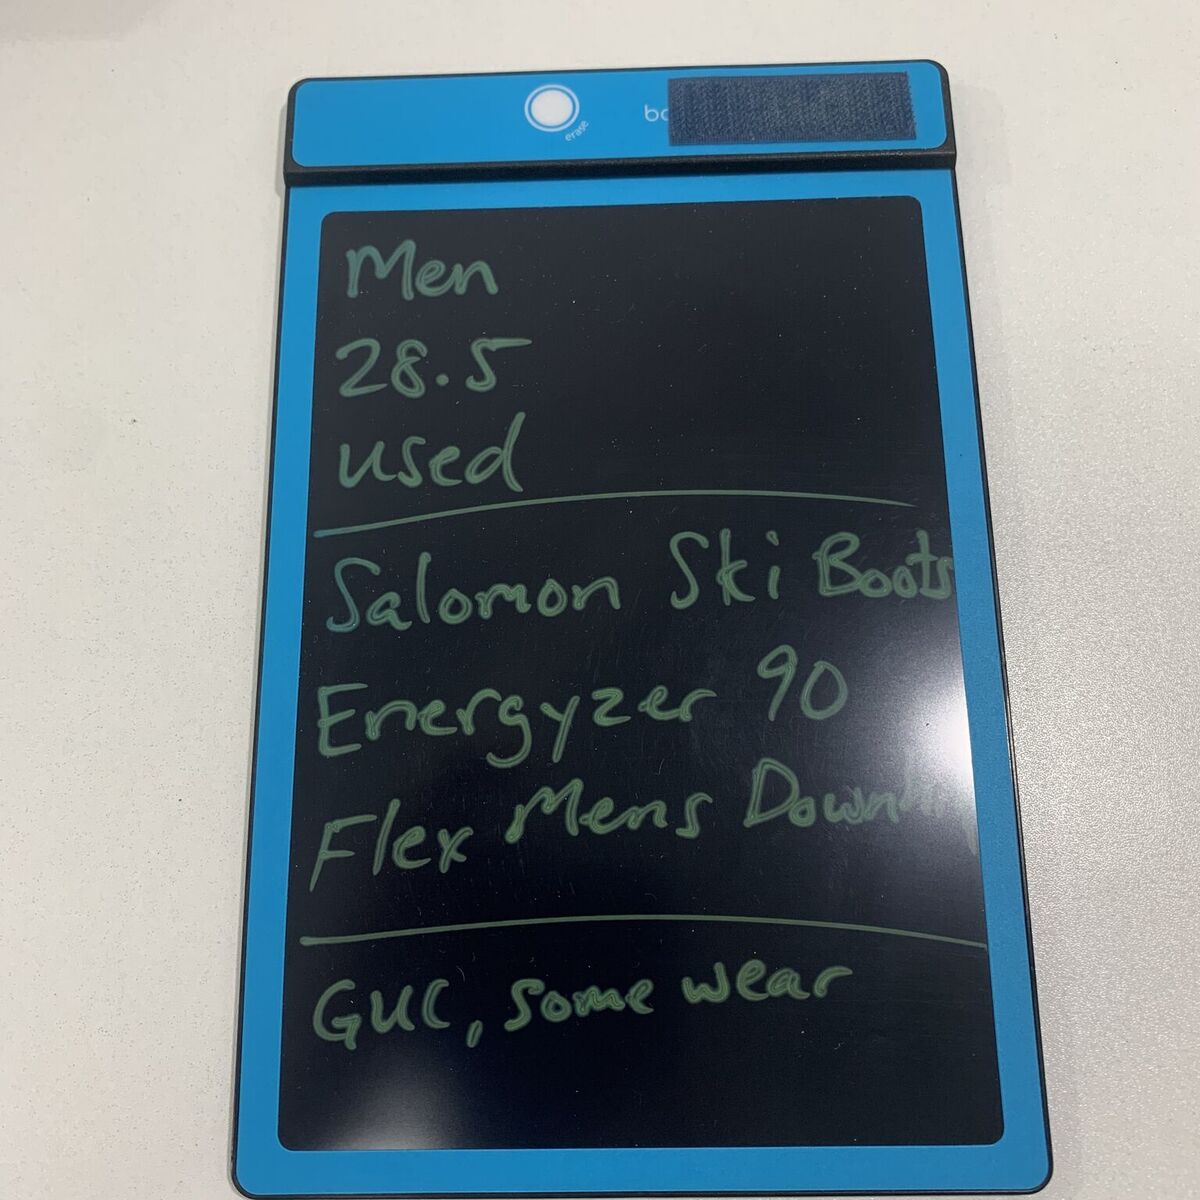 erase
Men
28.5
used
Salomon Ski Boots
Energyzer 90
Flex Mens
GUC, some wear